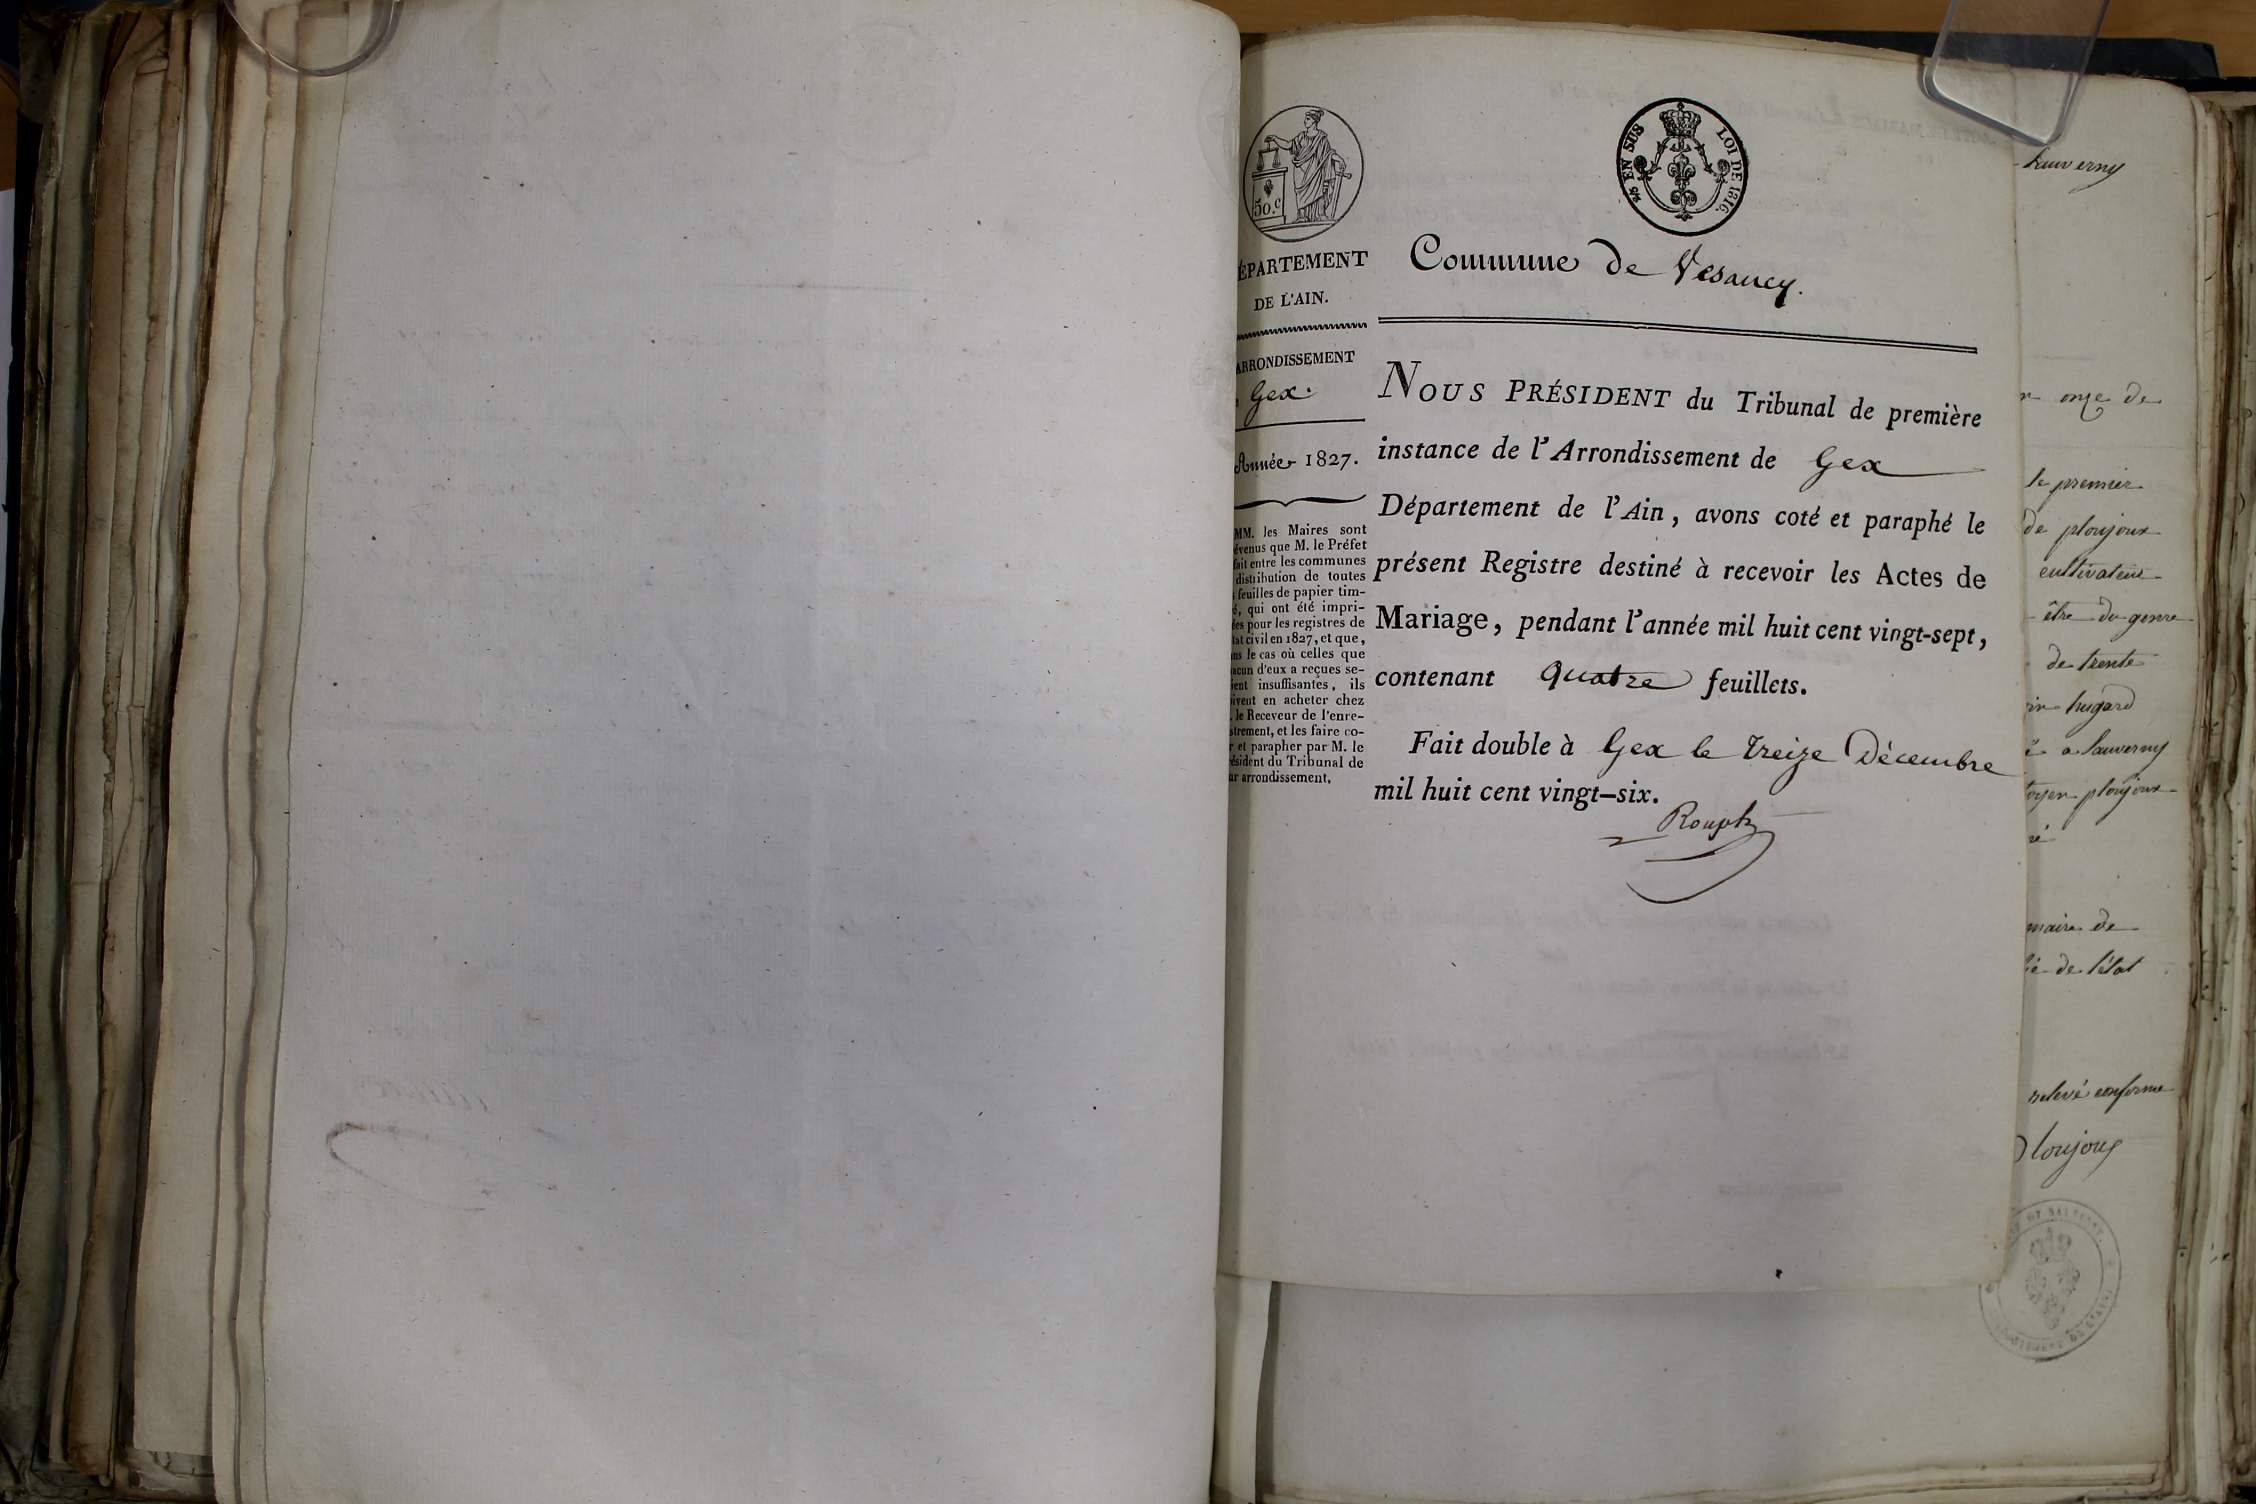 50.c
EN SUS LOI DE 1816.
ÉPARTEMENT
DE L'AIN.
ARRONDISSEMENT
Gex.
Année 1827.
MM. les Maires sont
évenus que M. le Préfet
fait entre les communes
distribution de toutes
feuilles de papier tim-
é, qui ont été impri-
ées pour les registres de
tat civil en 1827, et que,
ns le cas où celles que
acun d'eux a reçues se-
ient insuffisantes, ils
ivent en acheter chez
. le Receveur de l'enre-
strement, et les faire co-
r et parapher par M. le
ésident du Tribunal de
ur arrondissement.
Commune de Vesancy.
NOUS PRÉSIDENT du Tribunal de première
instance de l'Arrondissement de Gex
Département de l'Ain, avons coté et paraphé le
présent Registre destiné à recevoir les Actes de
Mariage, pendant l'année mil huit cent vingt-sept,
contenant quatre feuillets.
Fait double à Gex le treize Décembre
mil huit cent vingt-six.
Rouph
Sauverny
onze de
le premier
de ploujoux
cultivateur
être du genre
de trente
hugard
a Sauverny
ploujoux
maire de
de l'état
relevé conforme
Ploujoux